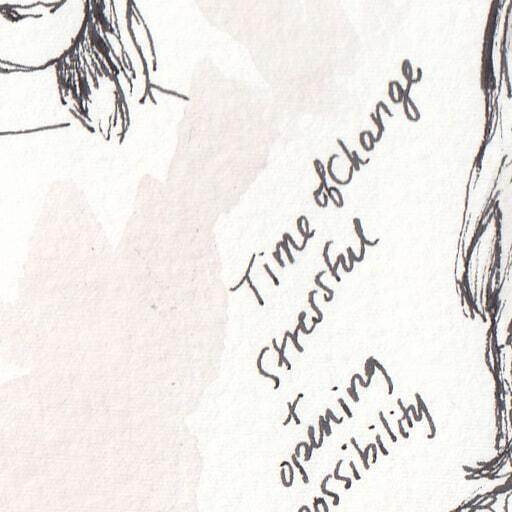 Time of Change
Stressful
+
opening
possibility